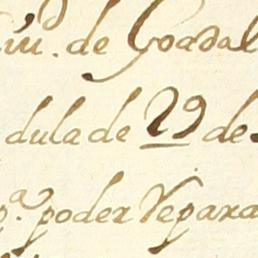 iud. de Goadal
dula de 29 de
pa. poder Separa